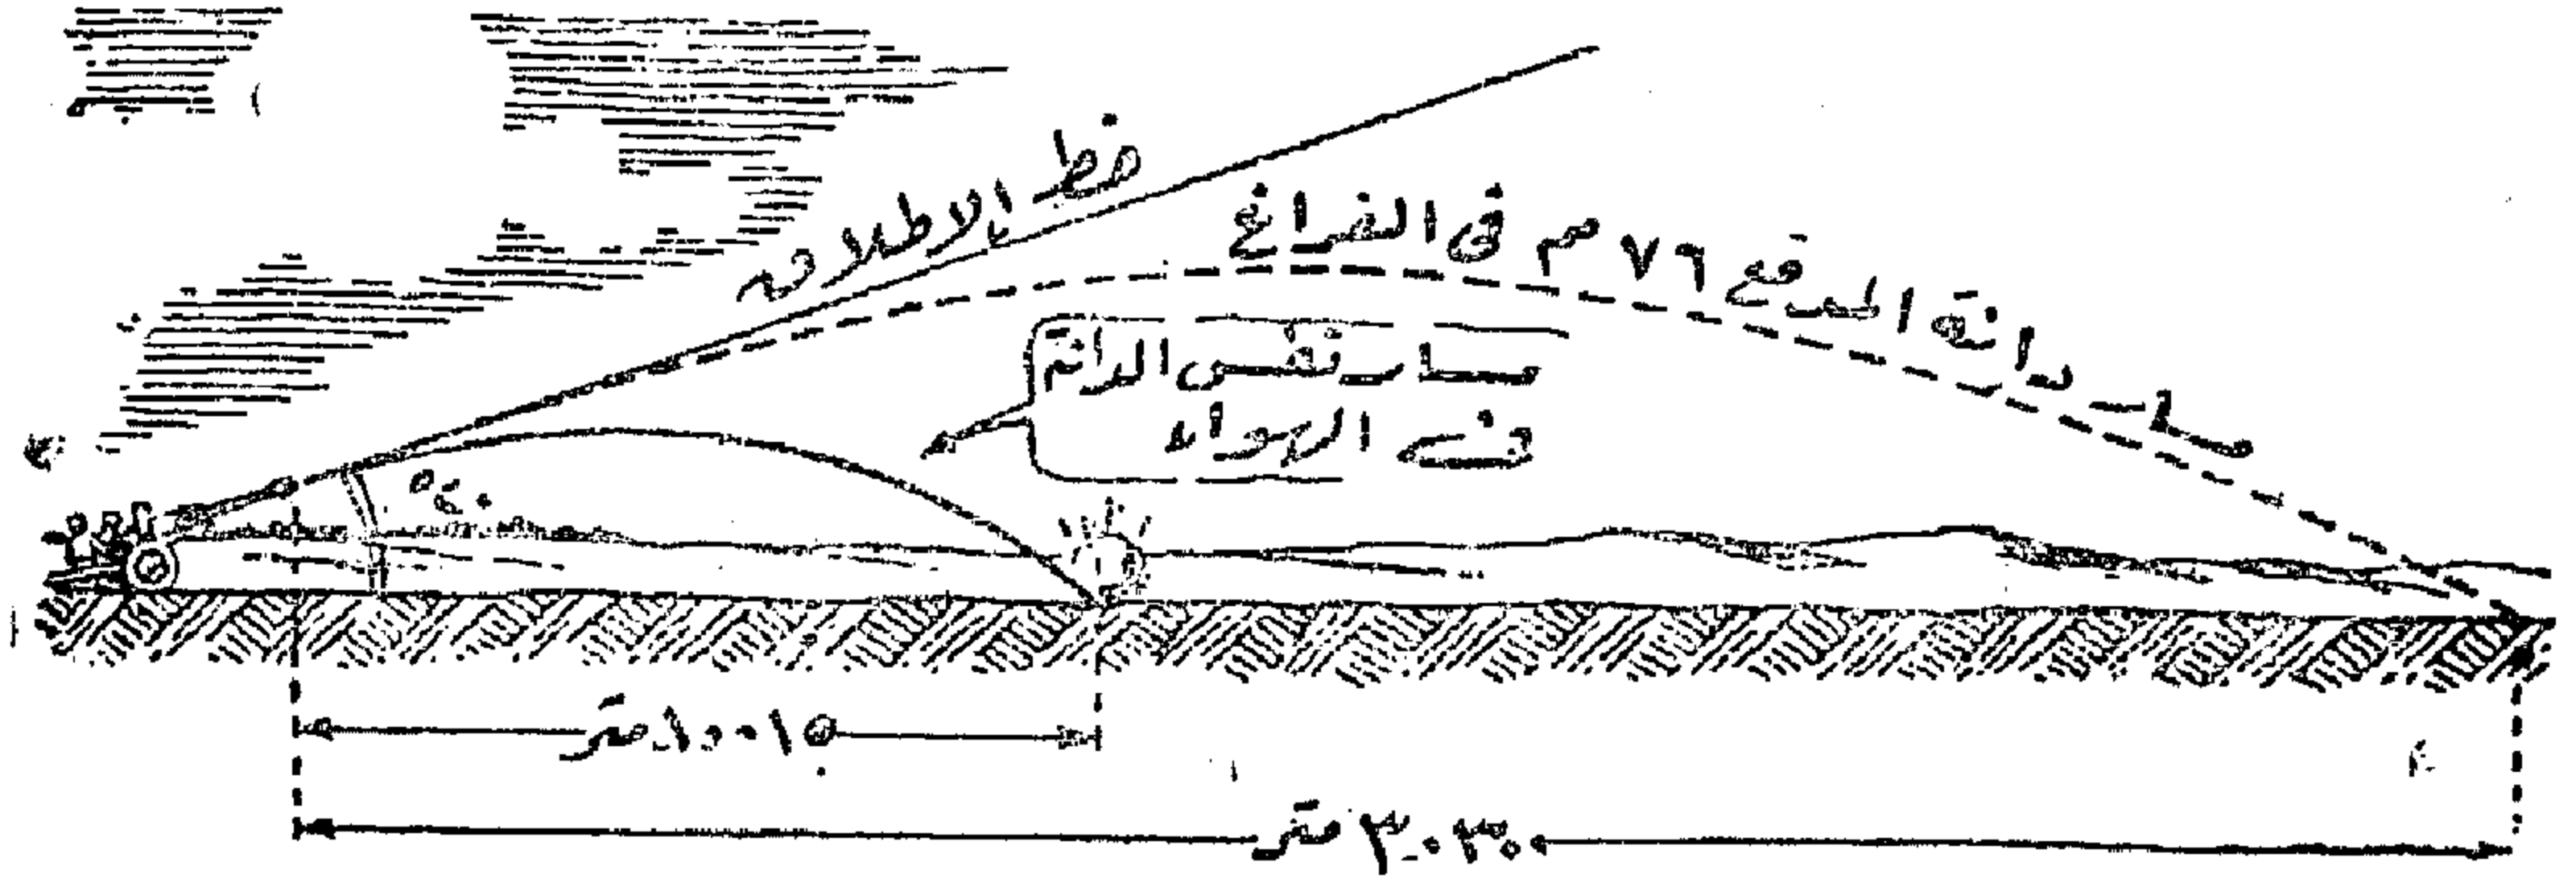 خط الإطلاق
مسار دانة المدفع ٧٦ مم في الفراغ
مسار نفس الدانة
في الهواء
°٢٠
١٠٠١٥ متر
٣٠٣٠٠ متر